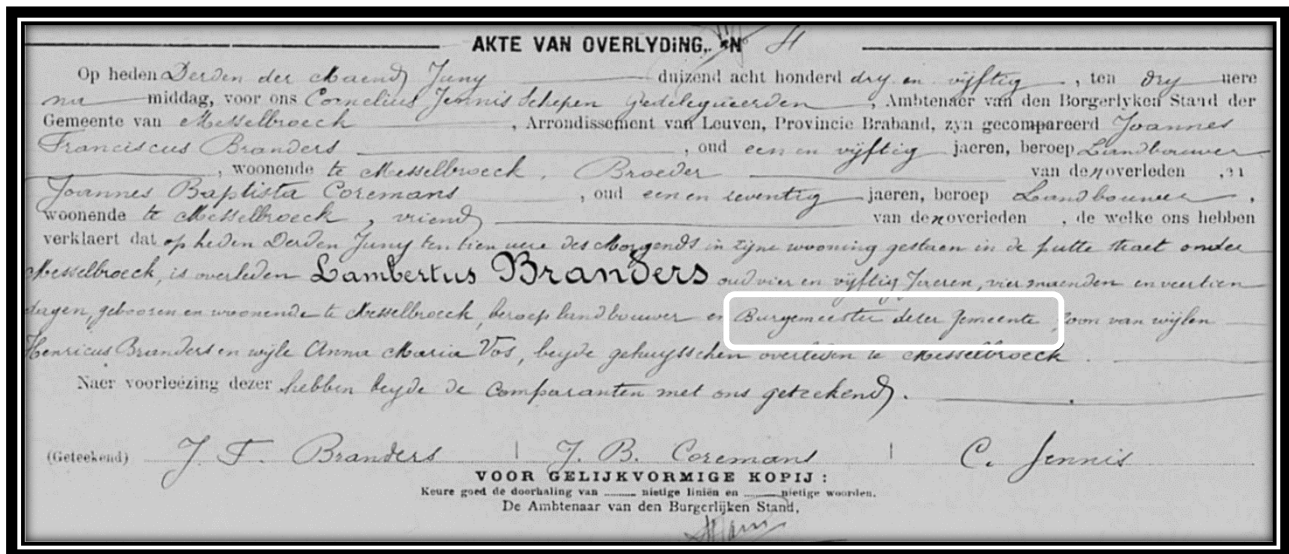 AKTE VAN OVERLYDING, N 4
Op heden Derden der Maend Juny duizend acht honderd dry en vyftig, ten dry uere
na middag, voor ons Cornelius Jennis Schepen Gedelegueerden, Ambtenaer van den Borgerlyken Stand der
Gemeente van Messelbroeck, Arrondissement van Leuven, Provincie Braband, zyn gecompareerd Joannes
Franciscus Branders, oud een en vyftig jaeren, beroep Landbouwer
, woonende te Messelbroeck, Broeder van den overleden, en
Joannes Baptista Coremans, oud een en seventig jaeren, beroep Landbouwer,
woonende te Messelbroeck, vriend van den overleden, de welke ons hebben
verklaert dat op heden Derden Juny ten tien uere des Morgends in zyne wooning gestaen in de putte straet onder
Messelbroeck, is overleden Lambertus Branders oud vier en vyftig Jaeren, vier maenden en veertien
dagen, gebooren en woonende te Messelbroeck, beroep landbouwer en Burgemeester deser Gemeente, zoon van wijlen
Henricus Branders en wijle Anna Maria Vos, beyde gehuysschen overleden te Messelbroeck.
Naer voorleezing dezer hebben beyde de comparanten met ons geteekend.
(Geteekend) J. F. Branders | J. B. Coremans | C. Jennis
VOOR GELIJKVORMIGE KOPIJ :
Keure goed de doorhaling van ........ nietige liniën en ........ nietige woorden.
De Ambtenaar van den Burgerlijken Stand,